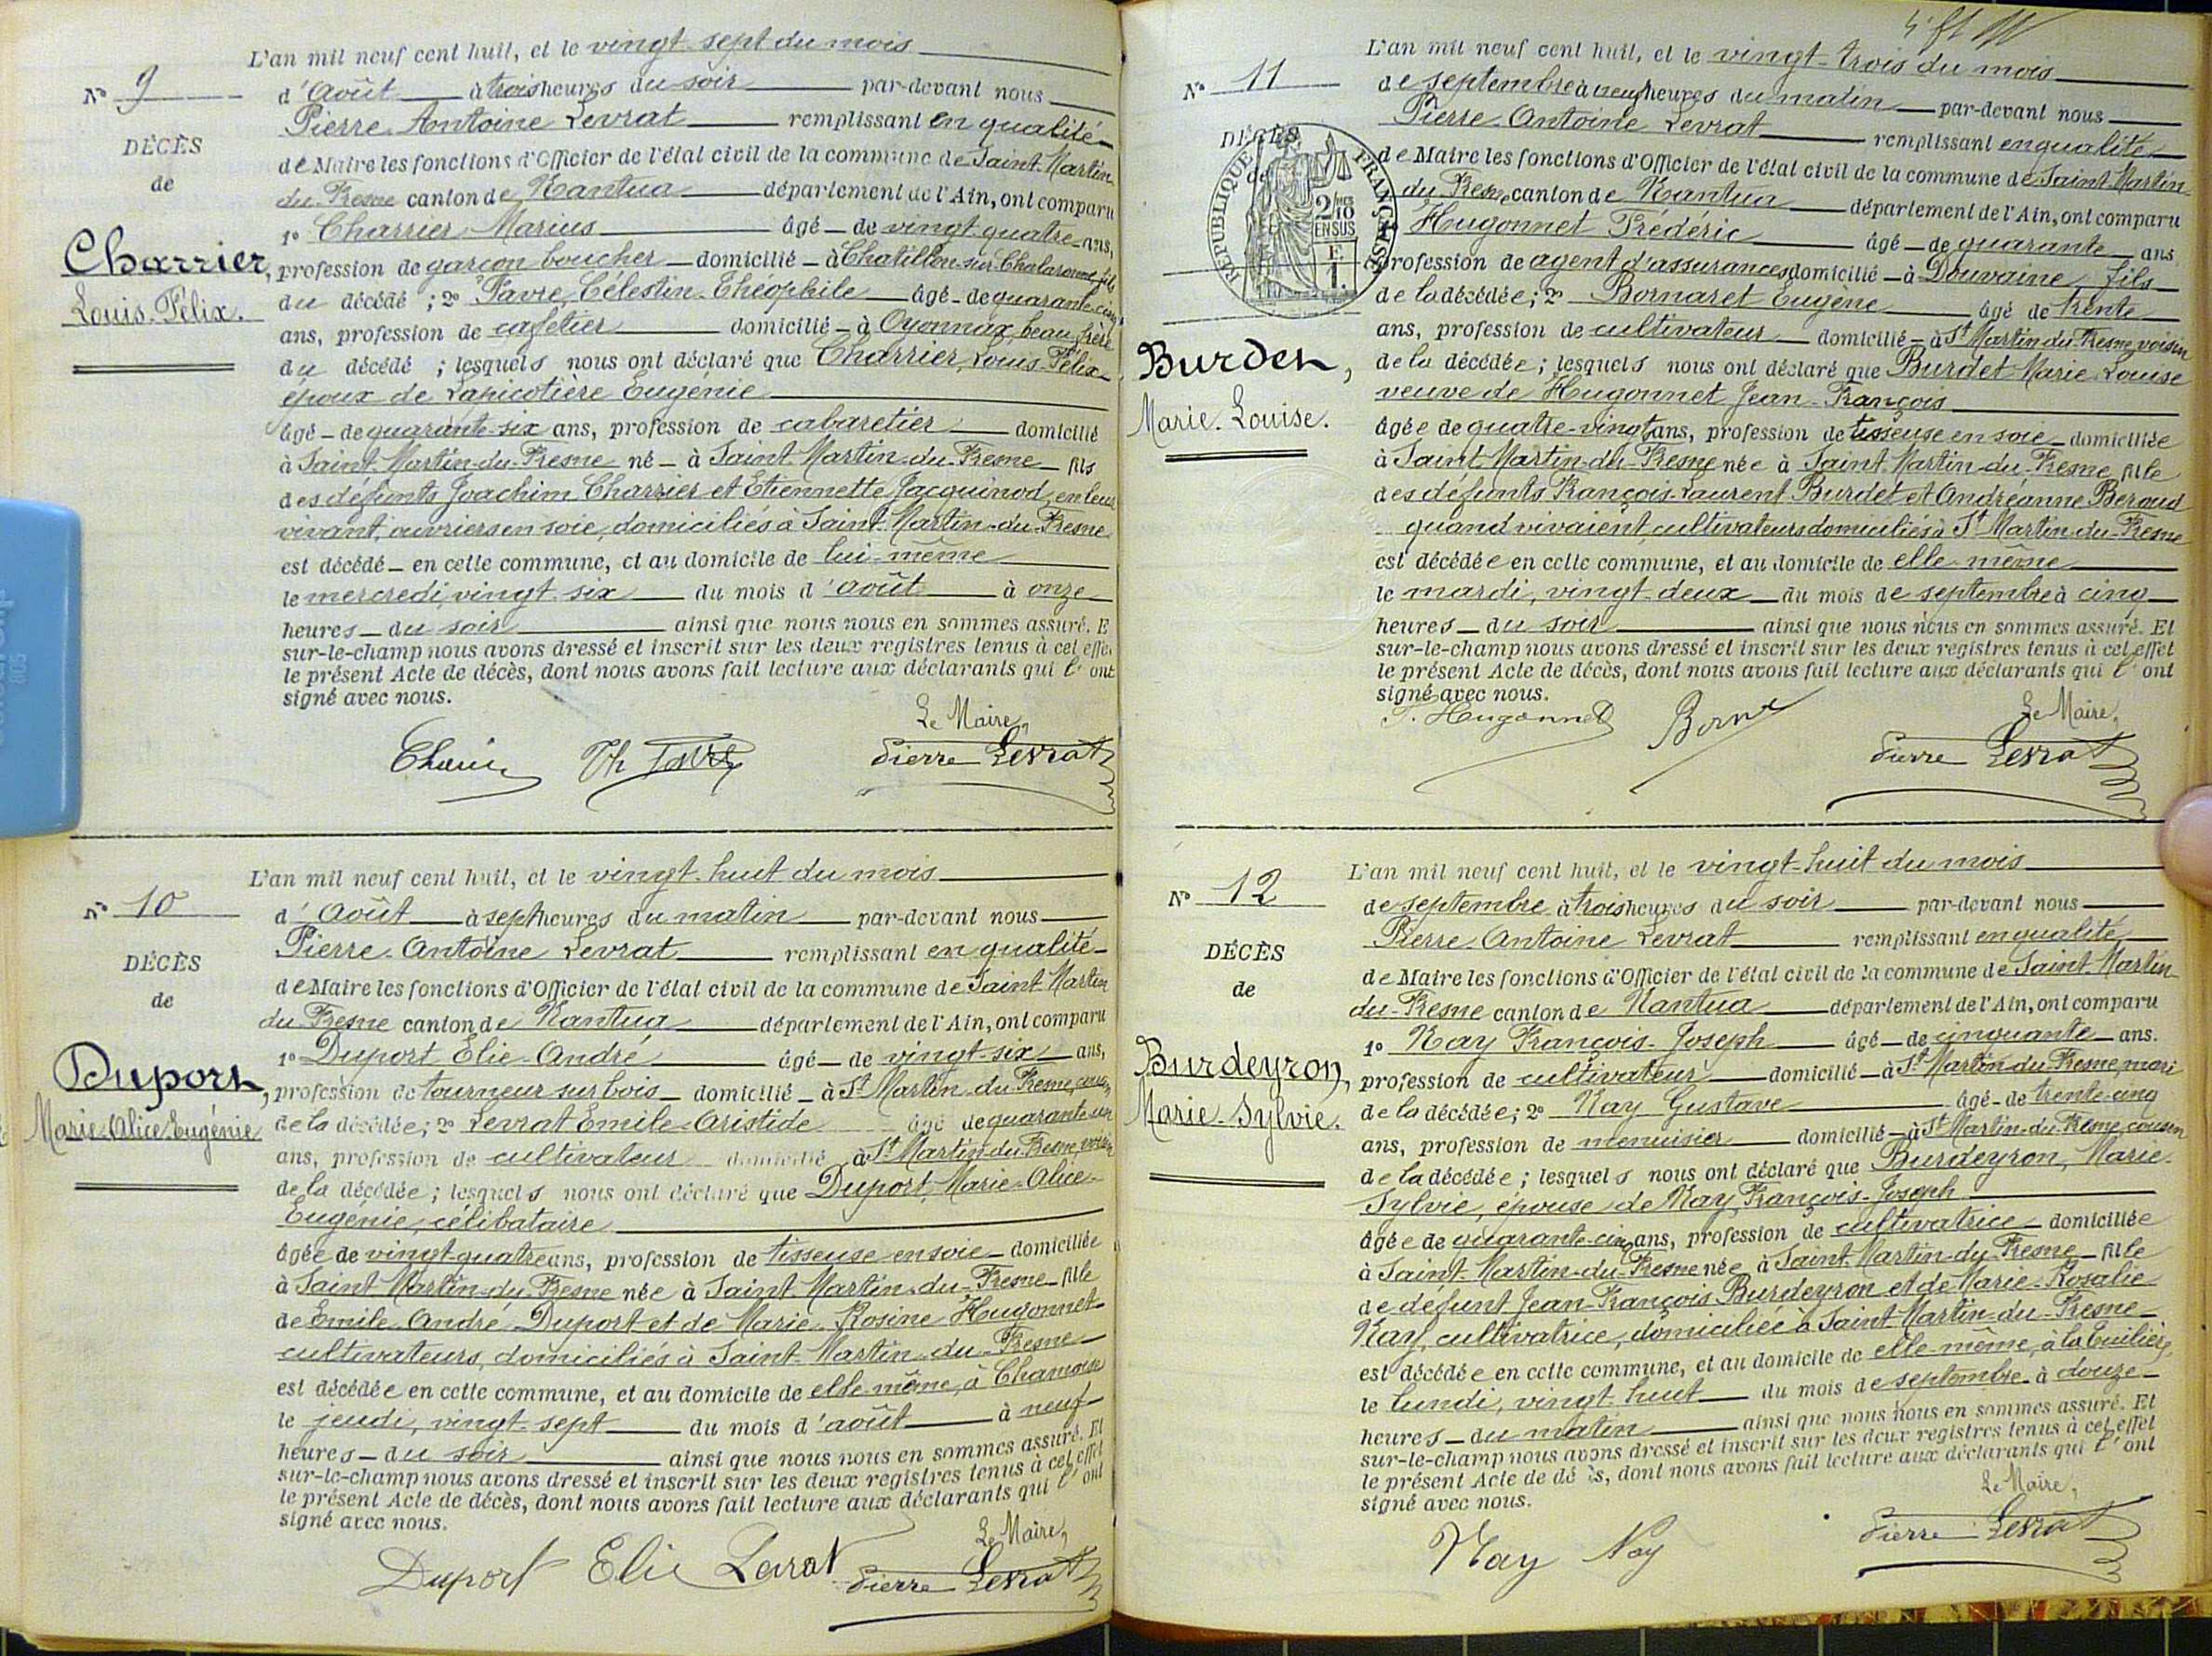 L'an mil neuf cent huit, et le vingt-sept du mois
N° 9
d'Août à trois heures du soir par-devant nous
Pierre-Antoine Levrat remplissant en qualité
DÉCÈS
de Maire les fonctions d'Officier de l'état civil de la commune de Saint-Martin
de
du-Fresne canton de Nantua département de l'Ain, ont comparu
1° Charrier Marius âgé de vingt-quatre ans,
Charrier,
profession de garçon boucher domicilié à Chatillon-sur-Chalaronne, fils
Louis-Félix.
du décédé ; 2° Favre, Célestin-Théophile âgé de quarante-cinq
ans, profession de cafetier domicilié à Oyonnax, beau-frère
du décédé ; lesquels nous ont déclaré que Charrier, Louis-Félix
époux de Lapicotière Eugénie
âgé de quarante-six ans, profession de cabaretier domicilié
à Saint-Martin-du-Fresne né à Saint-Martin-du-Fresne fils
des défunts Joachim Charrier et Etiennette Jacquinod, en leur
vivant, ouvriers en soie, domiciliés à Saint-Martin-du-Fresne
est décédé en cette commune, et au domicile de lui-même
le mercredi, vingt-six du mois d'août à onze
heures du soir ainsi que nous nous en sommes assuré. E
sur-le-champ nous avons dressé et inscrit sur les deux registres tenus à cet effet
le présent Acte de décès, dont nous avons fait lecture aux déclarants qui l'ont
signé avec nous.
Le Maire,
Th Favre Pierre Levrat
L'an mil neuf cent huit, et le vingt-huit du mois
N° 10
d'Août à sept heures du matin par-devant nous
Pierre-Antoine Levrat remplissant en qualité
DÉCÈS
de Maire les fonctions d'Officier de l'état civil de la commune de Saint-Martin
de
du-Fresne canton de Nantua département de l'Ain, ont comparu
1° Duport Elie-André âgé de vingt-six ans,
Duport,
profession de tourneur sur bois domicilié à St Martin-du-Fresne, cousin
Marie-Alice-Eugénie
de la décédée ; 2° Levrat Emile-Aristide âgé de quarante-un
ans, profession de cultivateur domicilié à St Martin-du-Fresne, voisin
de la décédée ; lesquels nous ont déclaré que Duport, Marie-Alice-
Eugénie, célibataire
âgée de vingt-quatre ans, profession de tisseuse en soie domiciliée
à Saint-Martin-du-Fresne née à Saint-Martin-du-Fresne fille
de Emile-André Duport et de Marie-Rosine Hugonnet
cultivateurs, domiciliés à Saint-Martin-du-Fresne
est décédée en cette commune, et au domicile de elle-même, à Chamoise
le jeudi, vingt-sept du mois d'août à neuf
heures du soir ainsi que nous nous en sommes assuré. Et
sur-le-champ nous avons dressé et inscrit sur les deux registres tenus à cet effet
le présent Acte de décès, dont nous avons fait lecture aux déclarants qui l'ont
signé avec nous.
Le Maire,
Duport Elie Levrat Pierre Levrat
L'an mil neuf cent huit, et le vingt-trois du mois
N° 11
de septembre à neuf heures du matin par-devant nous
Pierre-Antoine Levrat remplissant en qualité
DÉCÈS
RÉPUBLIQUE FRANÇAISE
2/10 EN SUS
de Maire les fonctions d'Officier de l'état civil de la commune de Saint-Martin
du-Fresne, canton de Nantua département de l'Ain, ont comparu
Hugonnet Frédéric âgé de quarante ans,
profession de agent d'assurances domicilié à Douvaine, fils
de la décédée ; 2° Bornaret Eugène âgé de trente
ans, profession de cultivateur domicilié à St Martin-du-Fresne, voisin
Burdet,
de la décédée ; lesquels nous ont déclaré que Burdet Marie-Louise
Marie-Louise.
veuve de Hugonnet Jean-François
âgée de quatre-vingt ans, profession de tisseuse en soie domiciliée
à Saint-Martin-du-Fresne née à Saint-Martin-du-Fresne fille
des défunts François-Laurent Burdet et Andréanne Beraud
quand vivaient, cultivateurs domiciliés à St Martin-du-Fresne
est décédée en cette commune, et au domicile de elle-même
le mardi, vingt-deux du mois de septembre à cinq
heures du soir ainsi que nous nous en sommes assuré. Et
sur-le-champ nous avons dressé et inscrit sur les deux registres tenus à cet effet
le présent Acte de décès, dont nous avons fait lecture aux déclarants qui l'ont
signé avec nous.
Le Maire,
F. Hugonnet Pierre Levrat
L'an mil neuf cent huit, et le vingt-huit du mois
N° 12
de septembre à trois heures du soir par-devant nous
Pierre-Antoine Levrat remplissant en qualité
DÉCÈS
de Maire les fonctions d'Officier de l'état civil de la commune de Saint-Martin
de
du-Fresne canton de Nantua département de l'Ain, ont comparu
1° Nay François-Joseph âgé de cinquante ans.
Burdeyron,
profession de cultivateur domicilié à St Martin-du-Fresne mari
Marie-Sylvie.
de la décédée ; 2° Nay Gustave âgé de trente-cinq
ans, profession de menuisier domicilié à St Martin-du-Fresne, cousin
de la décédée ; lesquels nous ont déclaré que Burdeyron, Marie-
Sylvie, épouse de Nay, François-Joseph
âgée de quarante-cinq ans, profession de cultivatrice domiciliée
à Saint-Martin-du-Fresne née à Saint-Martin-du-Fresne fille
de défunt Jean-François Burdeyron et de Marie-Rosalie
Nay, cultivatrice, domiciliée à Saint-Martin-du-Fresne
est décédée en cette commune, et au domicile de elle-même, à la
le lundi, vingt-huit du mois de septembre à douze
heures du matin ainsi que nous nous en sommes assuré. Et
sur-le-champ nous avons dressé et inscrit sur les deux registres tenus à cet effet
le présent Acte de décès, dont nous avons fait lecture aux déclarants qui l'ont
signé avec nous.
Le Maire,
Nay Nay Pierre Levrat